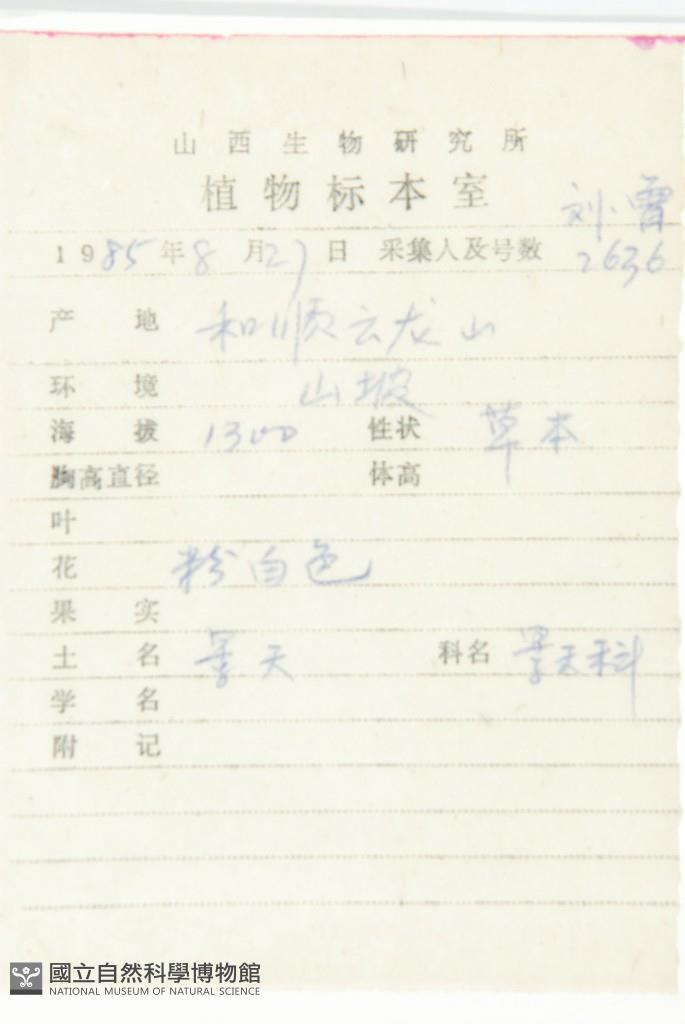 山西生物研究所
植物标本室
刘、曾
1985年8月27日 采集人及号数 2636
产地 和顺云龙山
环境 山坡
海拔 1300 性状 草本
胸高直径 体高
叶
花 粉白色
果实
土名 景天 科名 景天科
学名
附记
國立自然科學博物館
NATIONAL MUSEUM OF NATURAL SCIENCE